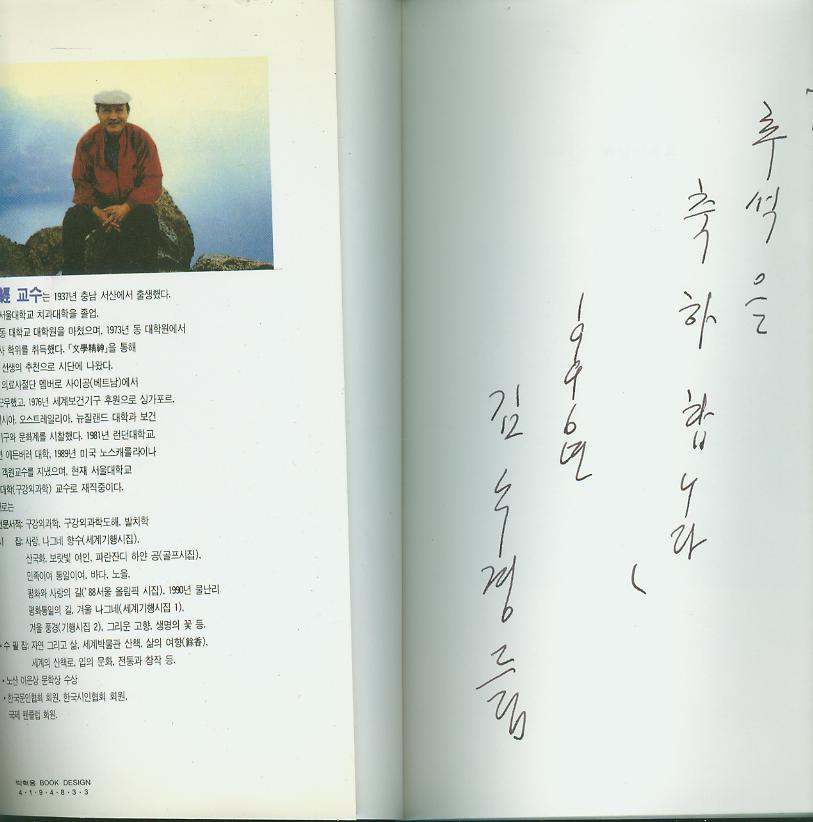 經 교수는 1937년 충남 서산에서 출생했다.
서울대학교 치과대학을 졸업,
동 대학교 대학원을 마쳤으며, 1973년 동 대학원에서
사 학위를 취득했다. 「文學精神」을 통해
선생의 추천으로 시단에 나왔다.
의료사절단 멤버로 사이공(베트남)에서
근무했고, 1976년 세계보건기구 후원으로 싱가포르,
시아, 오스트레일리아, 뉴질랜드 대학과 보건
기구와 문화계를 시찰했다. 1981년 런던대학교,
년 에든버러 대학, 1989년 미국 노스캐롤라이나
객원교수를 지냈으며, 현재 서울대학교
대학(구강외과학) 교수로 재직중이다.
로는
전문서적: 구강외과학, 구강외과학도해, 발치학
시 집: 사랑, 나그네 향수(세계기행시집),
산국화, 보랏빛 여인, 파란잔디 하얀 공(골프시집),
민족이여 통일이여, 바다, 노을,
평화와 사랑의 길('88서울 올림픽 시집), 1990년 물난리
평화통일의 길, 겨울 나그네(세계기행시집 1),
겨울 풍경(기행시집 2), 그리운 고향, 생명의 꽃 등.
• 수 필 집: 자연 그리고 삶, 세계박물관 산책, 삶의 여향(餘香),
세계의 산책로, 입의 문화, 전통과 창작 등.
• 노산 이은상 문학상 수상
• 한국문인협회 회원, 한국시인협회 회원,
국제 펜클럽 회원.
박혁용 BOOK DESIGN
4·1·9·4·8·3·3
추석을
축하합니다
1996년
김수경 드림